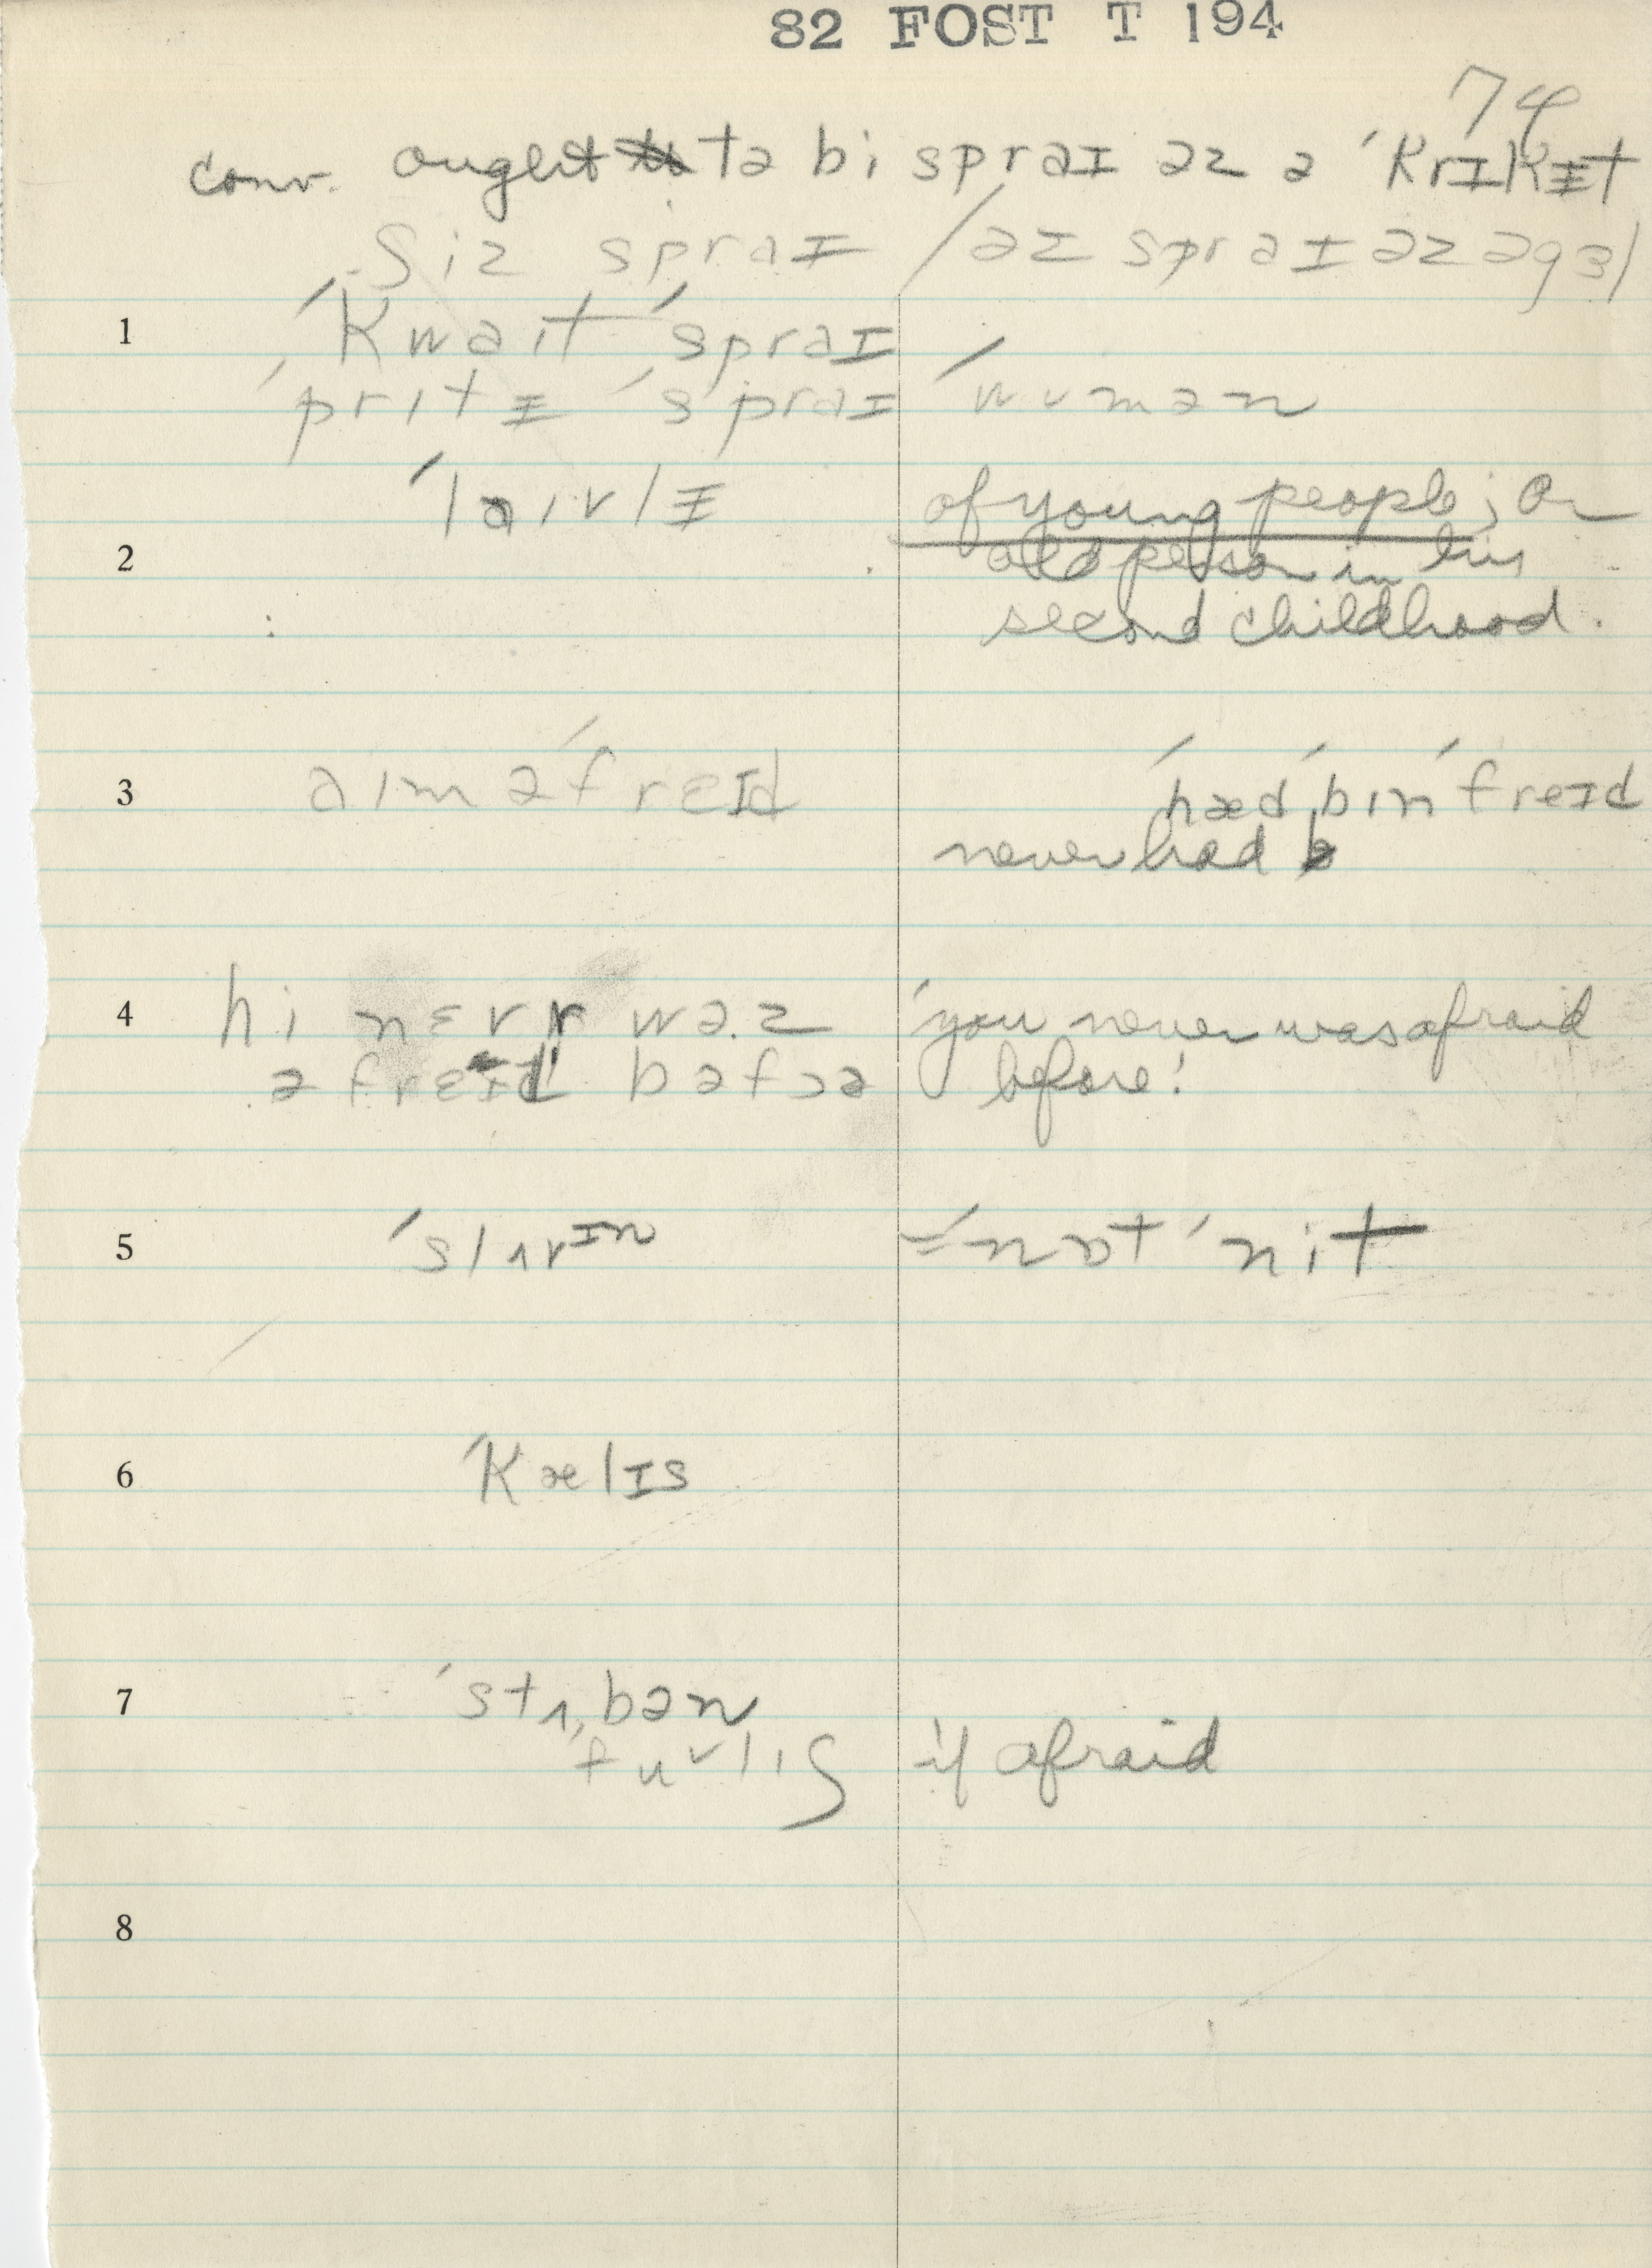 82 FOST T 194
74
conv. ought tə bi spraɪ əz ə ˈkrɪkɨt
ʃiz spraɪ / əz spraɪ əz ə gɜl
1 ˈkwaɪt ˈspraɪ
ˈprɪtɨ ˈspraɪ ˈwʊmən
ˈlaɪvlɨ of young people; or
2 old person in his
second childhood.
3 aɪm əˈfreɪd ˈhæd ˈbɪn ˈfreɪd
never had
4 hi nɛvr wəz ˈyou never was afraid
əfreɪd bəfɔə before!
5 ˈslʌvɪn = ˈnɒt ˈnit
6 ˈkælɪs
7 ˈstʌbən
ˈfulɪʃ if afraid
8